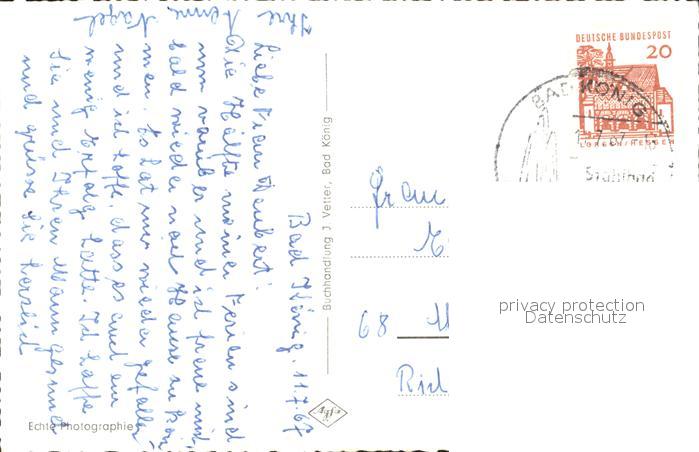 Bad König, 11.7.67
Liebe Frau Neubert!
Die Hälfte meiner Ferien sind
nun vorüber und ich freue mich,
bald wieder nach Hause zu kom
men. Es hat mir wieder gefallen
und ich hoffe, dass es auch ein
wenig Erfolg hatte. Ich hoffe
Sie und Ihren Mann gesund
und grüsse Sie herzlich
Ihre
Nagel
Echte Photographie
Buchhandlung J. Vetter, Bad König
DEUTSCHE BUNDESPOST
20
LORSCH/HESSEN
BAD KÖNIG
Frau
68
privacy protection
Datenschutz